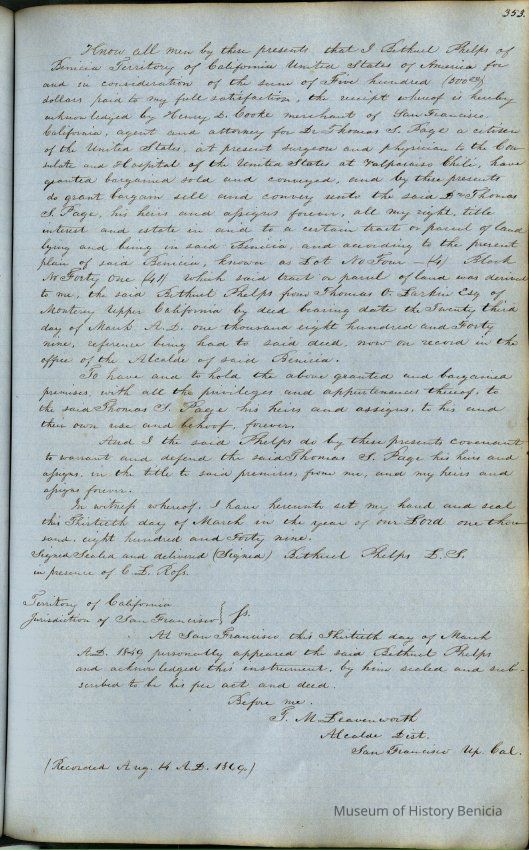 353.
Know all men by these presents, that I Bethuel Phelps of
Benicia Territory of California United States of America for
and in consideration of the sum of Five hundred (500
dollars paid to my full satisfaction, the receipt whereof is hereby
acknowledged by Henry D. Cooke merchant of San Francisco
California, agent and attorney for Dr Thomas S. Page a citizen
of the United States, at present surgeon and physician to the Con-
sulate and Hospital of the United States at Valparaiso Chili, have
granted bargained sold and conveyed, and by these presents
do grant bargain sell and convey unto the said Dr Thomas
S. Page, his heirs and assigns forever, all my right, title
interest and estate in and to a certain tract or parcel of land
lying and being in said Benicia, and according to the present
plan of said Benicia, known as Lot No Four — (4) Block
No Forty One (41) which said tract or parcel of land was derived
to me, the said Bethuel Phelps from Thomas O. Larkin Esq of
Monterey Upper California by deed bearing date the Twenty third
day of March A.D. one thousand eight hundred and Forty
nine, reference being had to said deed, now on record in the
office of the Alcalde of said Benicia.
To have and to hold the above granted and bargained
premises, with all the privileges and appertenances thereof, to
the said Thomas S. Page his heirs and assigns, to his and
their own use and behoof, forever.
And I the said Phelps do by these presents covenant
to warrant and defend the said Thomas S. Page his heirs and
assigns, in the title to said premises, from me, and my heirs and
assigns forever.
In witness whereof, I have hereunto set my hand and seal
this Thirtieth day of March in the year of our Lord one thou
sand, eight hundred and Forty nine.
Signed Sealed and delivered (Signed) Bethuel Phelps L.S.
in presence of C. L. Ross.
Territory of California
Jurisdiction of San Francisco } ss.
At San Francisco this Thirtieth day of March
A.D. 1849 personally appeared the said Bethuel Phelps
and acknowledged this instrument, by him sealed and sub-
scribed to be his free act and deed.
Before me.
T. M. Leavenworth
Alcalde Dist.
San Francisco Up. Cal.
(Recorded Aug. 14 A.D. 1849.)
Museum of History Benicia